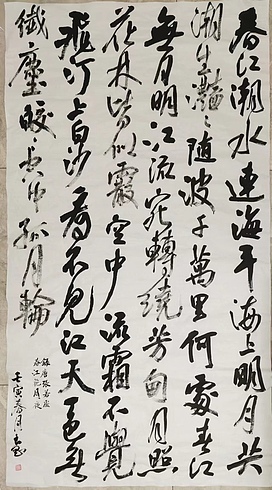 春江潮水連海平海上明月共
潮生灩々隨波千萬里何處春江
無月明江流宛轉繞芳甸月照
花林皆似霰空中流霜不覺
飛汀上白沙看不見江天一色無
纖塵皎々空中孤月輪
錄唐張若虛
春江花月夜
壬寅春月